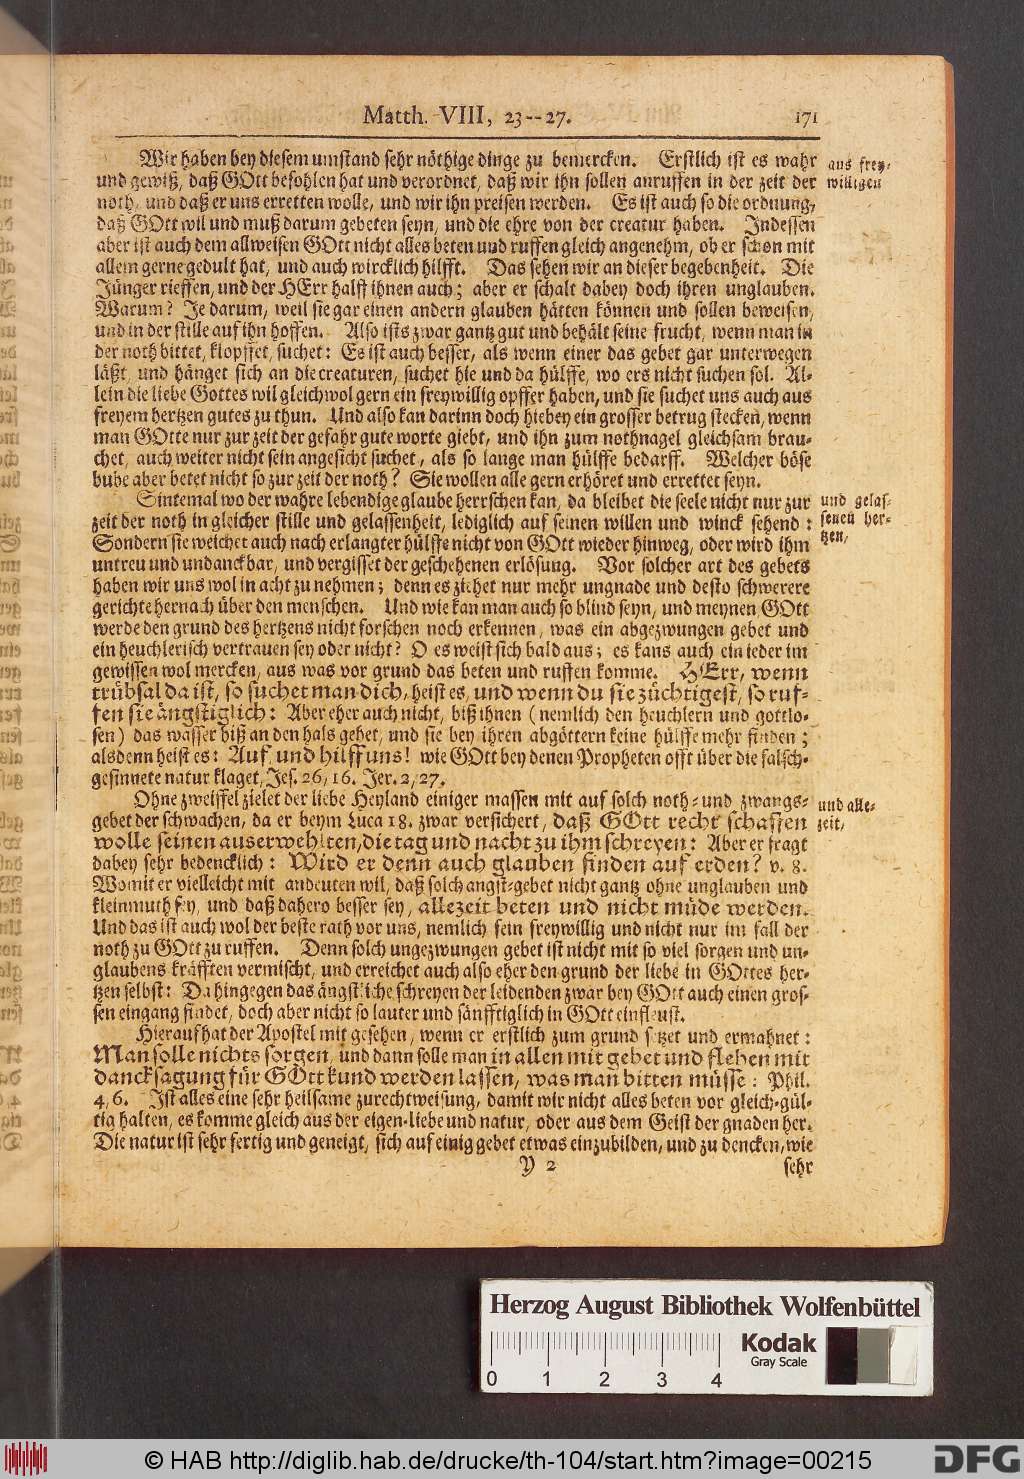 Matth. VIII, 23--27. 171
Wir haben bey diesem umstand sehr nöthige dinge zu bemercken. Erstlich ist es wahr
und gewiß, daß GOtt befohlen hat und verordnet, daß wir ihn sollen anruffen in der zeit der
noth, und daß er uns erretten wolle, und wir ihn preisen werden. Es ist auch so die ordnung,
daß GOtt wil und muß darum gebeten seyn, und die ehre von der creatur haben. Indessen
aber ist auch dem allweisen GOtt nicht alles beten und ruffen gleich angenehm, ob er schon mit
allem gerne gedult hat, und auch wircklich hilfft. Das sehen wir an dieser begebenheit. Die
Jünger rieffen, und der HErr halff ihnen auch; aber er schalt dabey doch ihren unglauben.
Warum? Je darum, weil sie gar einen andern glauben hätten können und sollen beweisen,
und in der stille auf ihn hoffen. Also ists zwar gantz gut und behält seine frucht, wenn man in
der noth bittet, klopffet, suchet: Es ist auch besser, als wenn einer das gebet gar unterwegen
läßt, und hänget sich an die creaturen, suchet hie und da hülffe, wo ers nicht suchen sol. Al-
lein die liebe Gottes wil gleichwol gern ein freywillig opffer haben, und sie suchet uns auch aus
freyem hertzen gutes zu thun. Und also kan darinn doch hiebey ein grosser betrug stecken, wenn
man GOtte nur zur zeit der gefahr gute worte giebt, und ihn zum nothnagel gleichsam brau-
chet, auch weiter nicht sein angesicht suchet, als so lange man hülffe bedarff. Welcher böse
bube aber betet nicht so zur zeit der noth? Sie wollen alle gern erhöret und errettet seyn.
aus frey-
willigen
Sintemal wo der wahre lebendige glaube herrschen kan, da bleibet die seele nicht nur zur
zeit der noth in gleicher stille und gelassenheit, lediglich auf seinen willen und winck sehend:
Sondern sie weichet auch nach erlangter hülffe nicht von GOtt wieder hinweg, oder wird ihm
untreu und undanckbar, und vergisset der geschehenen erlösung. Vor solcher art des gebets
haben wir uns wol in acht zu nehmen; denn es ziehet nur mehr ungnade und desto schwerere
gerichte hernach über den menschen. Und wie kan man auch so blind seyn, und meynen, GOtt
werde den grund des hertzens nicht forschen noch erkennen, was ein abgezwungen gebet und
ein heuchlerisch vertrauen sey oder nicht? O es weist sich bald aus; es kans auch ein ieder im
gewissen wol mercken, aus was vor grund das beten und ruffen komme. HErr, wenn
trübsal da ist, so suchet man dich, heist es, und wenn du sie züchtigest, so ruf-
fen sie ängstiglich: Aber eher auch nicht, biß ihnen (nemlich den heuchlern und gottlo-
sen) das wasser biß an den hals gehet, und sie bey ihren abgöttern keine hülffe mehr finden;
alsdenn heist es: Auf, und hilff uns! wie GOtt bey denen Propheten offt über die falsch-
gesinnete natur klaget, Jes. 26, 16. Jer. 2, 27.
und gelas-
senen her-
tzen,
Ohne zweiffel zielet der liebe Heyland einiger massen mit auf solch noth- und zwangs-
gebet der schwachen, da er beym Luca 18. zwar versichert, daß GOtt recht schaffen
wolle seinen auserwehlten, die tag und nacht zu ihm schreyen: Aber er fragt
dabey sehr bedencklich: Wird er denn auch glauben finden auf erden? v. 8.
Womit er vielleicht mit andeuten wil, daß solch angst-gebet nicht gantz ohne unglauben und
kleinmuth sey, und daß dahero besser sey, allezeit beten und nicht müde werden.
Und das ist auch wol der beste rath vor uns, nemlich fein freywillig und nicht nur im fall der
noth zu GOtt zu ruffen. Denn solch ungezwungen gebet ist nicht mit so viel sorgen und un-
glaubens kräfften vermischt, und erreichet auch also eher den grund der liebe in GOttes her-
tzen selbst: Dahingegen das ängstliche schreyen der leidenden zwar bey GOtt auch einen gros-
sen eingang findet, doch aber nicht so lauter und sänfftiglich in GOtt einfleust.
und alle-
zeit,
Hierauf hat der Apostel mit gesehen, wenn er erstlich zum grund setzet und ermahnet:
Man solle nichts sorgen, und dann solle man in allen mit gebet und flehen mit
dancksagung für GOtt kund werden lassen, was man bitten müsse: Phil.
4, 6. Ist alles eine sehr heilsame zurechtweisung, damit wir nicht alles beten vor gleich-gül-
tig halten, es komme gleich aus der eigen-liebe und natur, oder aus dem Geist der gnaden her.
Die natur ist sehr fertig und geneigt, sich auf einig gebet etwas einzubilden, und zu dencken, wie
Y 2 sehr
Herzog August Bibliothek Wolfenbüttel
0 1 2 3 4
Kodak
Gray Scale
© HAB http://diglib.hab.de/drucke/th-104/start.htm?image=00215
DFG